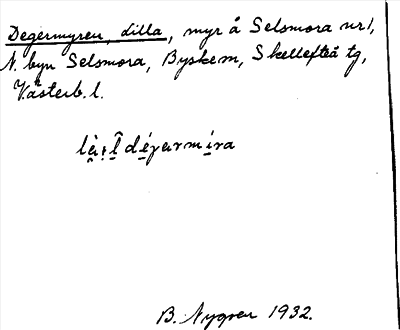 Degermyren, dilla, myr å Selsmora nr 1,
N. byn Selsmora, Byskem, Skellefteå tg,
Västerb. l.
B. Nygren 1932.